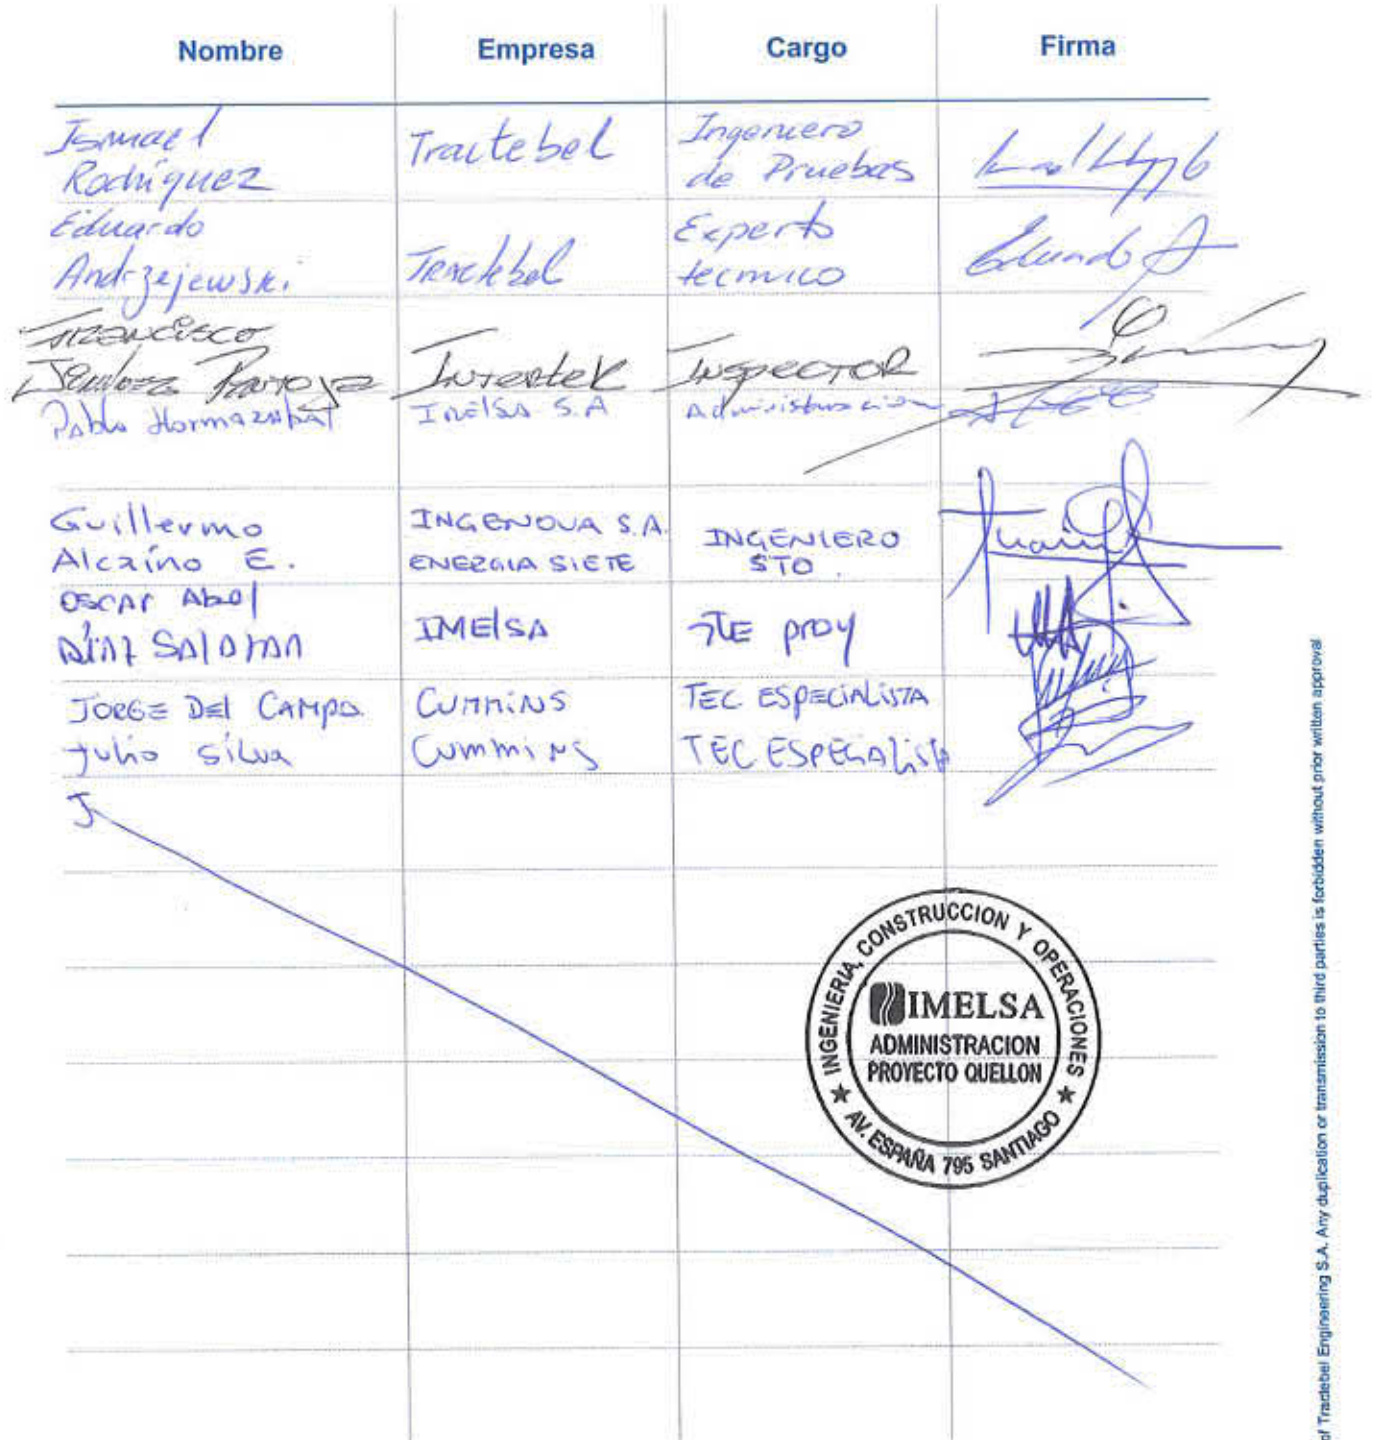 Nombre Empresa Cargo Firma
Ismael Rodríguez Tractebel Ingeniero de Pruebas
Eduardo Andrzejewski Tractebel Experto tecnico
Francisco Pantoja Intertek Inspector
Pablo Hormazabal IMELSA S.A Administracion
Guillermo Alcaíno E. INGENOVA S.A. ENERGIA SIETE INGENIERO STO.
OSCAR Abel DÍAZ IMELSA proy
JORGE Del CAMPO CUMMINS TEC. ESPECIALISTA
Julio Silva Cummins TEC ESPECIALISTA
J
INGENIERIA, CONSTRUCCION Y OPERACIONES
IMELSA
ADMINISTRACION
PROYECTO QUELLON
AV. ESPAÑA 795 SANTIAGO
of Tractebel Engineering S.A. Any duplication or transmission to third parties is forbidden without prior written approval